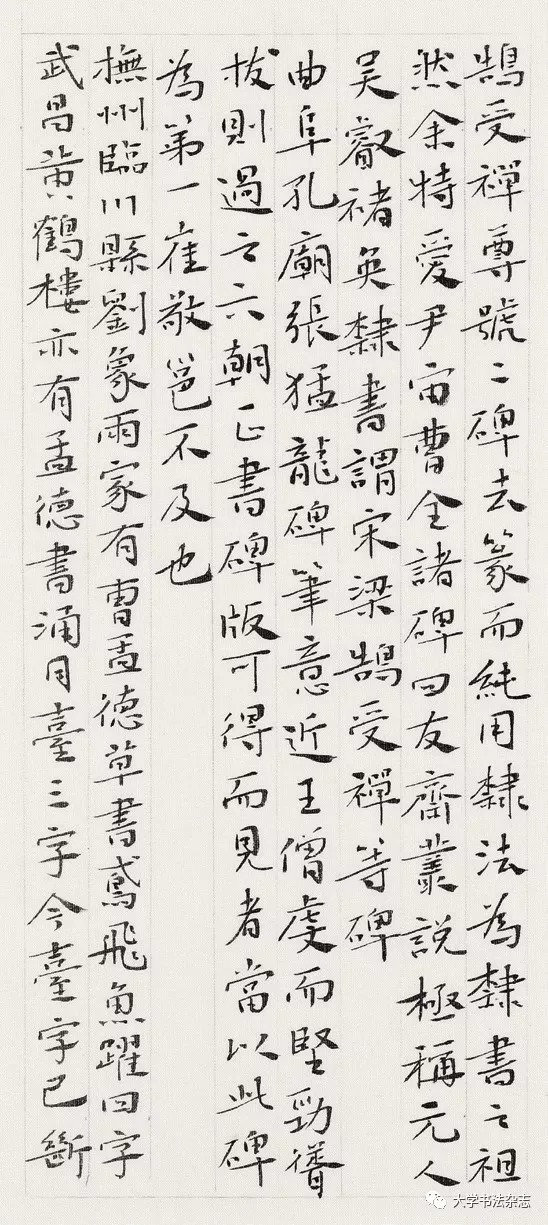 鵠受禪尊號二碑去篆而純用隸法為隸書之祖
然余特愛尹宙曹全諸碑曰友齋叢說極稱元人
吳叡褚奐隸書謂宋梁鵠受禪等碑
曲阜孔廟張猛龍碑筆意近王僧虔而堅勁
拔則過之六朝正書碑版可得而見者當以此碑
為第一崔敬邕不及也
撫州臨川縣劉象雨家有曹孟德草書鳶飛魚躍四字
武昌黃鶴樓亦有孟德書涌月臺三字今臺字已斷
大学书法杂志